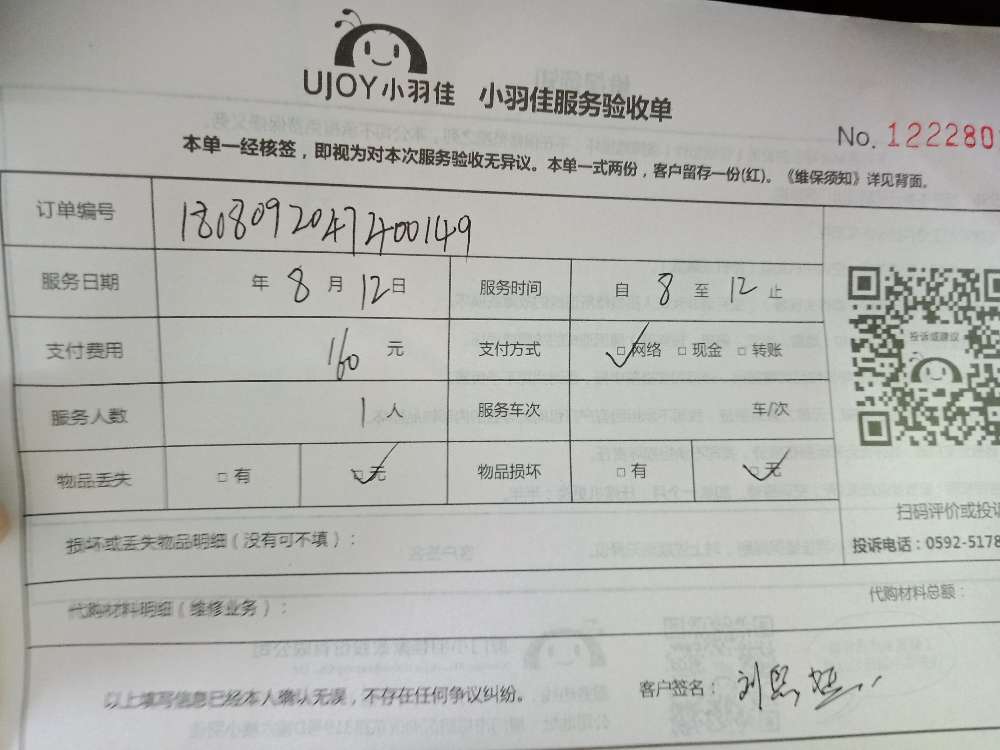 UJOY小羽佳 小羽佳服务验收单
No. 122280
本单一经核签，即视为对本次服务验收无异议。本单一式两份，客户留存一份(红)。《维保须知》详见背面。
订单编号 18080920472400149
服务日期 年 8 月 12 日 服务时间 自 8 至 12 止
支付费用 160 元 支付方式 □网络 □现金 □转账
投诉或建议
服务人数 1 人 服务车次 车/次
物品丢失 □有 □无 物品损坏 □有 □无
扫码评价或投诉
损坏或丢失物品明细（没有可不填）：
投诉电话：0592-5178
代购材料明细（维修业务）：
代购材料总额：
以上填写信息已经本人确认无误，不存在任何争议纠纷。 客户签名：刘